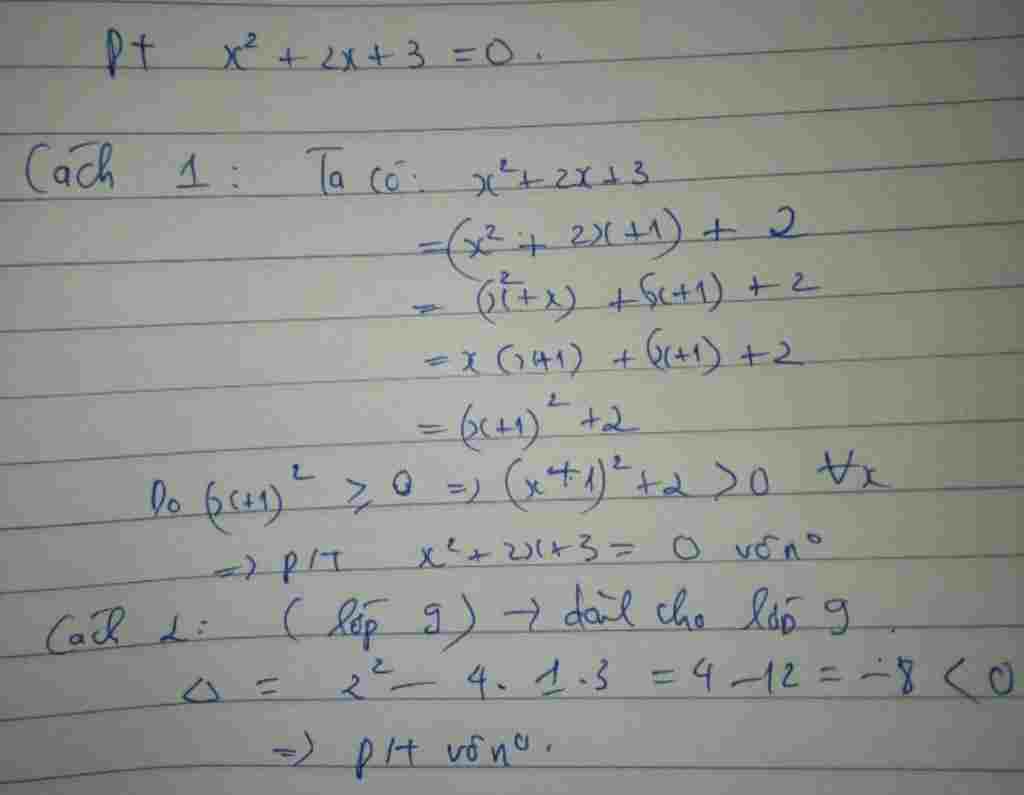 Pt x² + 2x + 3 = 0.
Cách 1: Ta có: x² + 2x + 3
= (x² + 2x + 1) + 2
= (x² + x) + (x+1) + 2
= x (x+1) + (x+1) + 2
= (x+1)² + 2
Do (x+1)² ≥ 0 => (x+1)² + 2 > 0 ∀x
=> p/t x² + 2x + 3 = 0 vô n⁰
Cách 2: (lớp 9) → dành cho lớp 9.
Δ = 2² - 4.1.3 = 4 - 12 = -8 < 0
=> p/t vô n⁰.